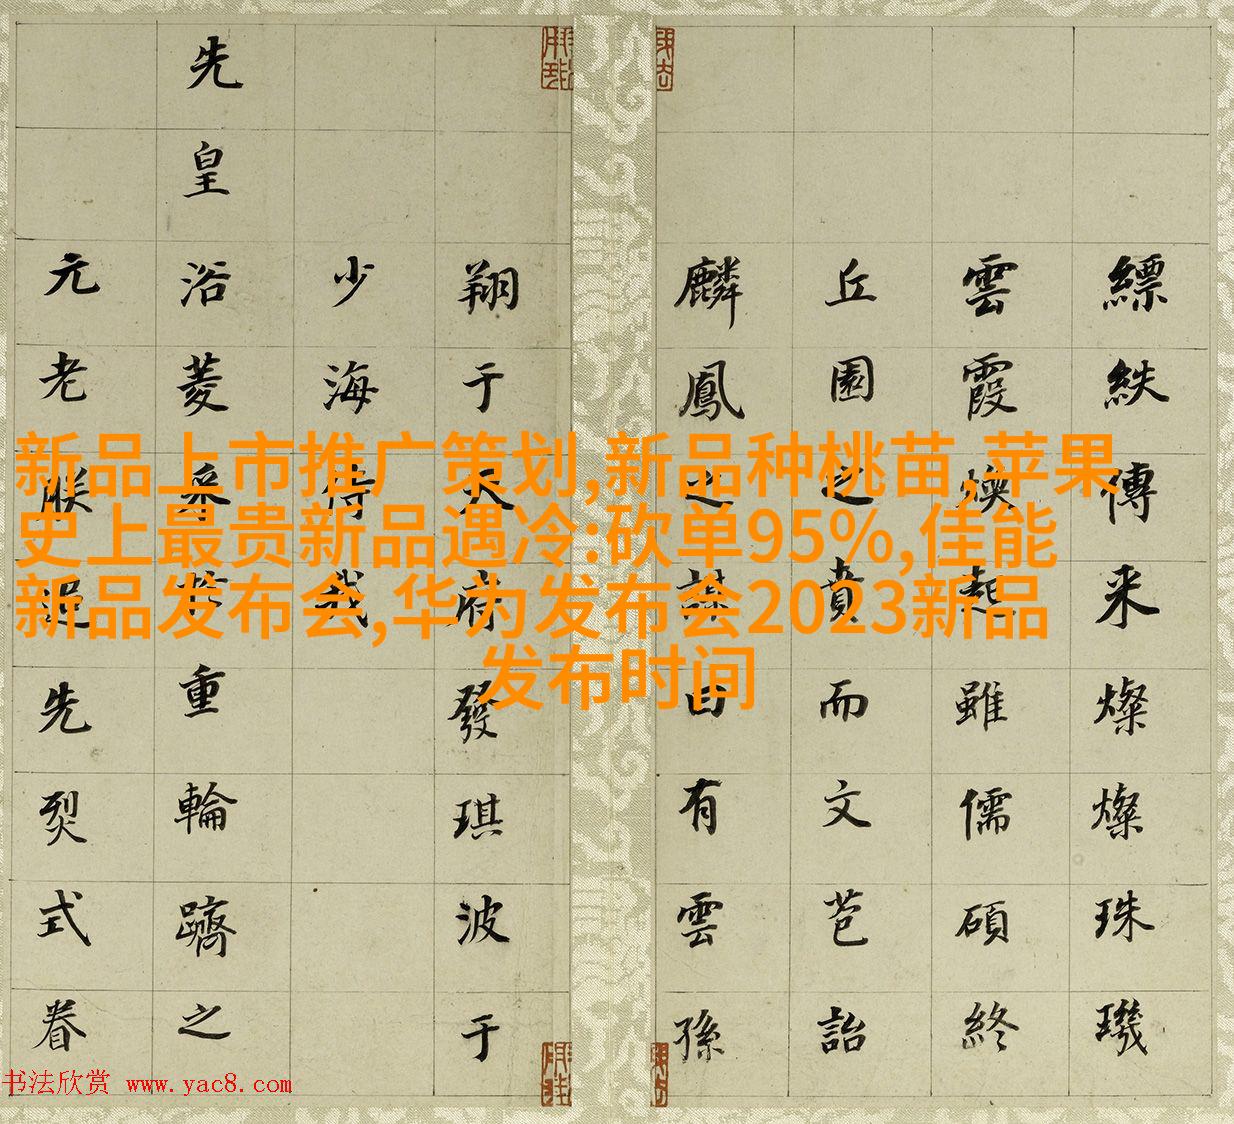 縹紩傳来燦燦珠璣
雲霞煥起雖儒碩終
丘園之賁而文芭詒
麟鳳之謀有雲孫
翔于天府發琪波于
少海侍我
先皇浴菱采於重輪躋之
元老朕追先烈式眷
新品上市推广策划,新品种桃苗,苹果
史上最贵新品遇冷:砍单95%,佳能
新品发布会,华为发布会2023新品
发布时间
书法欣赏 www.yac8.com